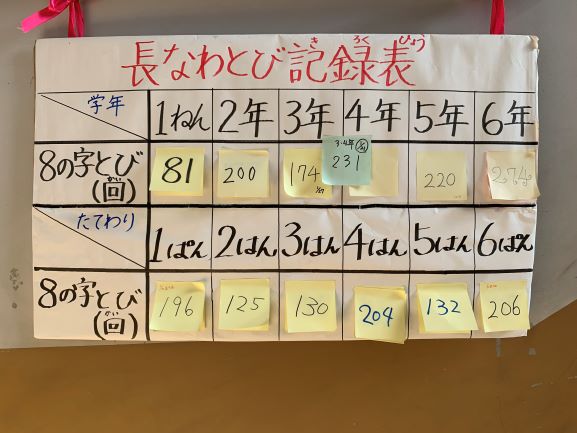 長なわとび記録表
き ろく ひょう
学年 1ねん 2年 3年 4年 5年 6年
8の字とび (回) 81 200 174 231 220 274
かい
3・4年
たてわり 1ぱん 2はん 3はん 4はん 5はん 6ぱん
8の字とび (回) 196 125 130 204 132 206
かい